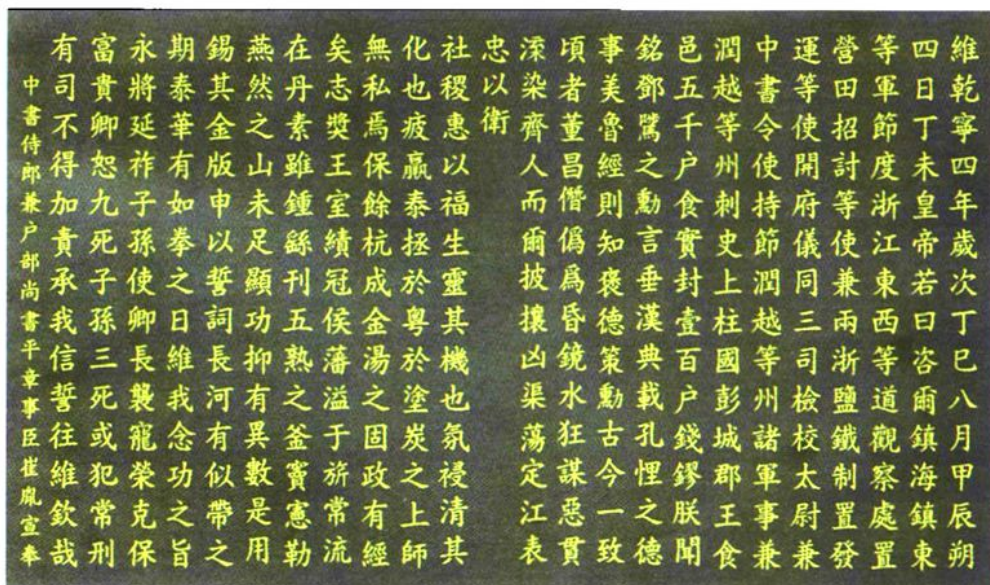 維乾寧四年歲次丁巳八月甲辰朔
四日丁未皇帝若曰咨爾鎮海鎮東
等軍節度浙江東西等道觀察處置
營田招討等使兼兩浙鹽鐵制置發
運等使開府儀同三司檢校太尉兼
中書令使持節潤越等州諸軍事兼
潤越等州刺史上柱國彭城郡王食
邑五千户食實封壹百户錢鏐朕聞
銘鄧騭之勳言垂漢典載孔悝之德
事美魯經則知褒德策勳古今一致
頃者董昌僭僞爲昏鏡水狂謀惡貫
渫染齊人而爾披攘凶渠蕩定江表
忠以衛
社稷惠以福生靈其機也氛祲清其
化也疲羸泰拯於粤於塗炭之上師
無私焉保餘杭成金湯之固政有經
矣志獎王室績冠侯藩溢于旂常流
在丹素雖鍾繇刊五熟之釜竇憲勒
燕然之山未足顯功抑有異數是用
錫其金版申以誓詞長河有似帶之
期泰華有如拳之日維我念功之旨
永將延祚子孫使卿長襲寵榮克保
富貴卿恕九死子孫三死或犯常刑
有司不得加責承我信誓往維欽哉
中書侍郎兼户部尚書平章事臣崔胤宣奉